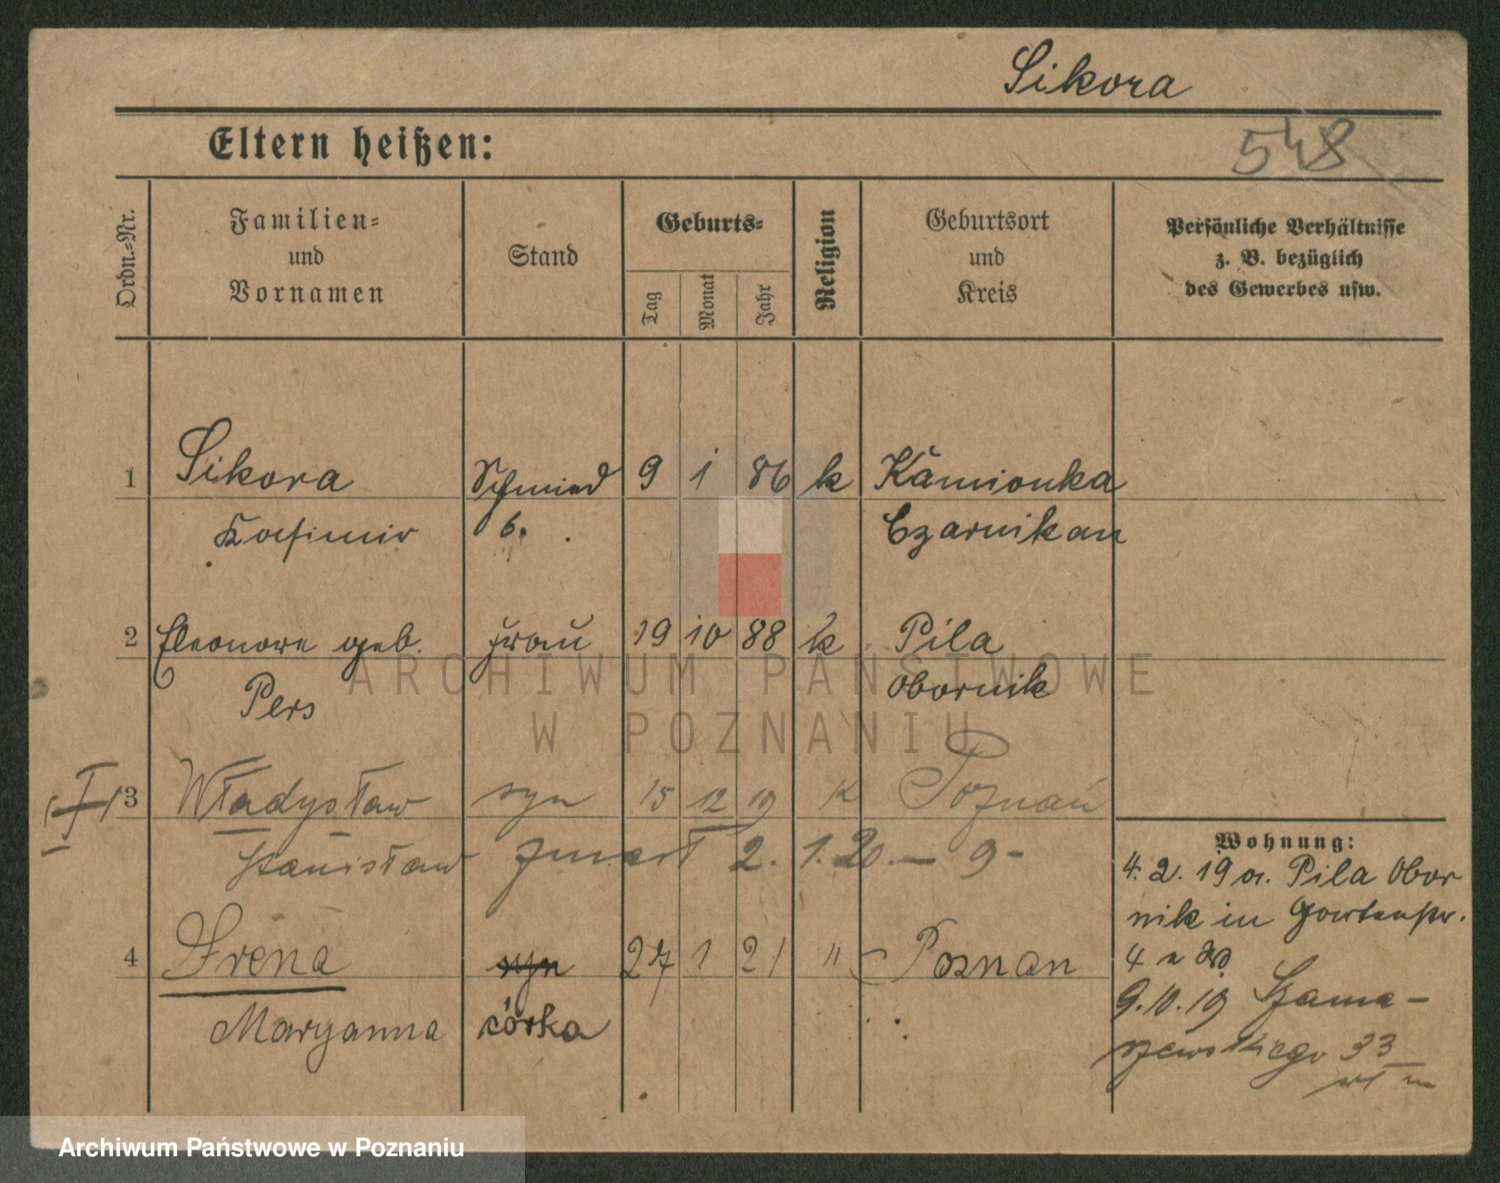 Sikora
548
Eltern heißen:
Ordn.-Nr.
Familien-
und
Vornamen
Stand
Geburts-
Tag
Monat
Jahr
Religion
Geburtsort
und
Kreis
Persönliche Verhältnisse
z. B. bezüglich
des Gewerbes usw.
1 Sikora Schmied 9 1 86 k Kamionka
Kasimir Czarnikau
2 Eleonore geb. Frau 19 10 88 k Pila
Pers Obornik
3 Władysław syn 15 12 19 K Poznań
Stanisław zmarł 2. 1. 20. — 9 -
4 Irena syn 27 1 21 " Poznan
Maryanna córka
Wohnung:
4. 2. 19 a. Pila Obor
nik in Gartenstr.
4
9.10.19 Szama-
rzewskiego 33
ARCHIWUM PAŃSTWOWE
W POZNANIU
Archiwum Państwowe w Poznaniu